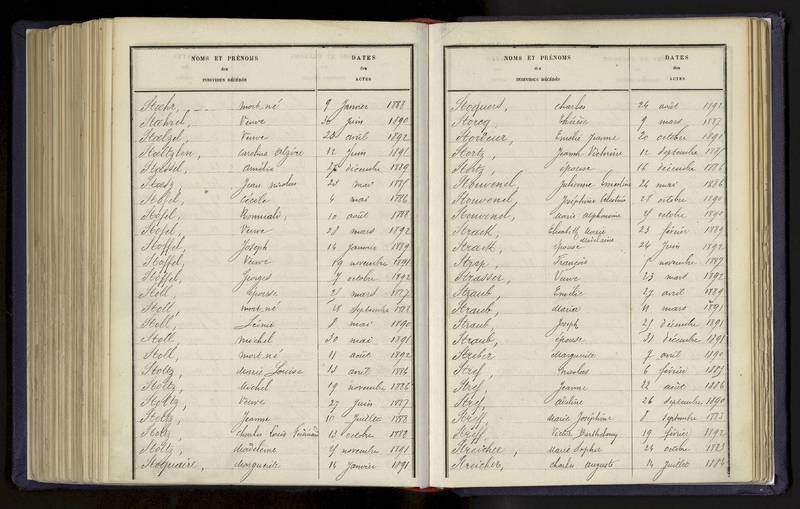 NOMS ET PRÉNOMS
des
INDIVIDUS DÉCÉDÉS
DATES
des
ACTES
Stoehr, mort-né 9 Janvier 1883
Veuve 30 Juin 1890
Stoelzel, Veuve 28 avril 1892
Stoeltzlen, 12 Juin 1891
Stoessel, Amélie décembre 1889
Jean Nicolas 28 mai 1885
Stofel, Cécile 4 mai 1886
Stofel, Romuald, 10 août 1888
Stofel, Veuve 28 mars 1892
Stoffel, Joseph 14 Janvier 1889
Stoffel, Veuve 19 novembre 1891
Stoffel, Georges 7 octobre 1892
Stoll, épouse mars 1887
Stoll, mort-né Septembre 1888
Stoll, 8 mai 1890
Stoll, Michel 30 mai 1891
Stoll, mort-né 11 août 1892
Stoltz, Marie Louise 13 avril 1886
Stoltz, Michel 19 novembre 1886
Stoltz, Veuve 27 Juin 1887
Stoltz, Jeanne 10 Juillet 1888
Stoltz, Charles Louis 13 octobre 1888
Stoltz, Madeleine novembre 1891
Stoquaire, Marguerite 14 Janvier 1891
NOMS ET PRÉNOMS
des
INDIVIDUS DÉCÉDÉS
DATES
des
ACTES
Charles 24 août 1892
9 mars 1887
Emélie Jeanne 20 octobre
Stortz, Jeanne Victorine 12 Septembre 1885
Stortz, épouse 16 décembre 1886
Stouvenel, Julienne 24 mai 1886
Stouvenel, Joséphine Célestine octobre 1890
Stouvenel, Marie Alphonsine octobre 1890
Strack, Elisabeth Marie 23 février 1889
Strack, épouse 24 Juin 1892
François novembre 1887
Strasser, Veuve 23 mars 1892
Straub, Emélie 27 avril 1889
Straub, Maria 11 mars 1891
Straub, Joseph décembre 1891
Straub, épouse 31 décembre 1891
Streber Marguerite 7 avril 1890
Stref, Nicolas 6 février 1885
Stref, Jeanne 22 août 1886
Stref, 26 Septembre 1890
Streff, Marie Joséphine 8 Septembre 1883
Streff, Victor Barthélemy 19 février 1892
Streicher, Marie Sophie 24 octobre 1883
Streicher, Charles Auguste 14 Juillet 1884